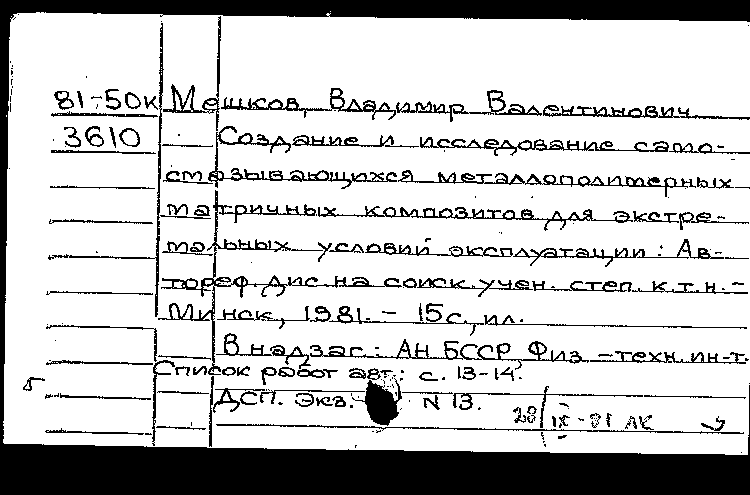 81-50к Мешков, Владимир Валентинович
3610 Создание и исследование само-
смазывающихся металлополимерных
матричных композитов для экстре-
мальных условий эксплуатации: Ав-
тореф. дис. на соиск. учен. степ. к.т.н. -
Минск, 1981. - 15с., ил.
В надзаг: АН БССР, Физ.-техн. ин-т.
Список работ авт: с. 13-14.
ДСП. Экз. N 13.
28/IX-81 ЛК